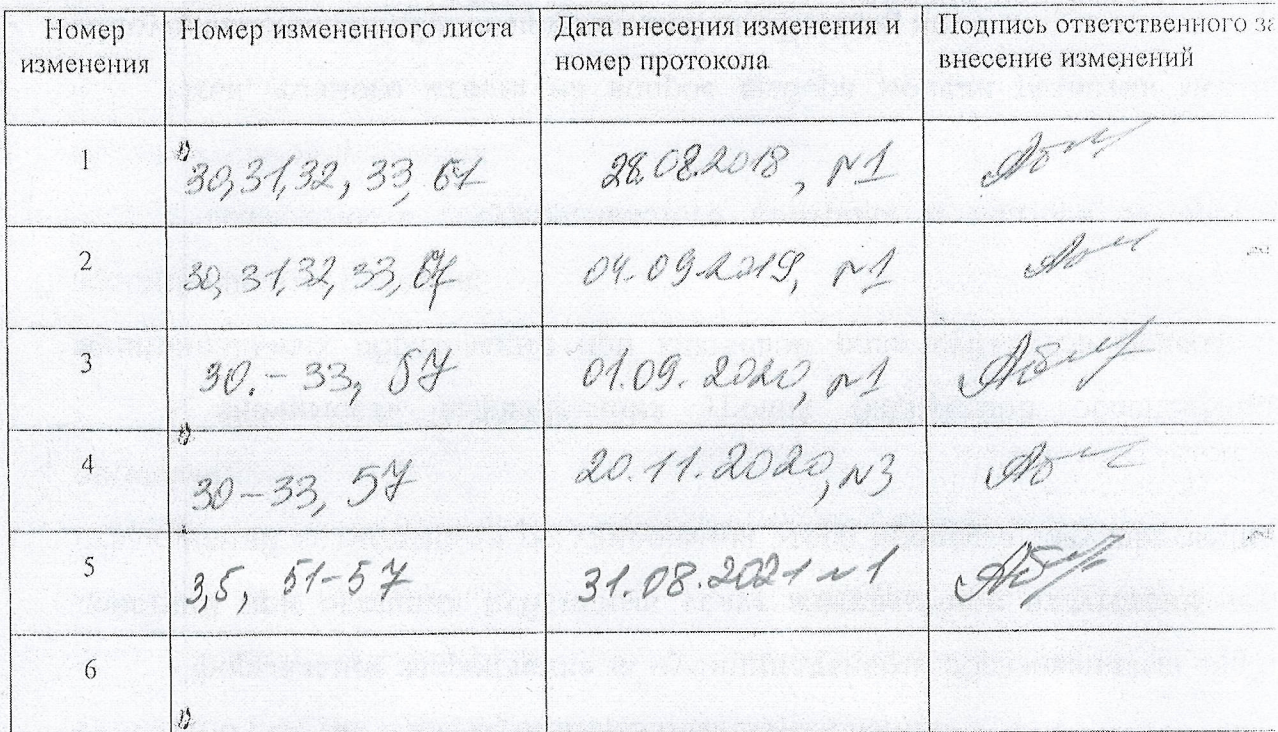 Номер изменения	Номер измененного листа	Дата внесения изменения и номер протокола	Подпись ответственного за внесение изменений
1	30,31,32, 33, 67	28.08.2018, №1
2	30,31,32,33, 67	04.09.2019, №1
3	30.-33, 57	01.09.2020, №1
4	30-33, 57	20.11.2020, №3
5	3,5, 51-57	31.08.2021 №1
6